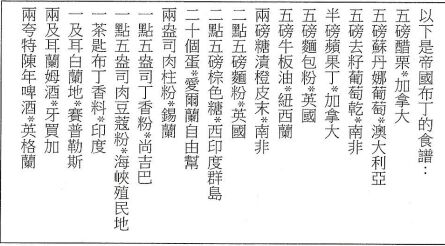 以下是帝國布丁的食譜：
五磅醋栗*加拿大
五磅蘇丹娜葡萄*澳大利亞
五磅去籽葡萄乾*南非
半磅蘋果丁*加拿大
五磅麵包粉*英國
五磅牛板油*紐西蘭
兩磅糖漬橙皮末*南非
二點五磅麵粉*英國
二點五磅棕色糖*西印度群島
二十個蛋*愛爾蘭自由幫
兩盎司肉桂粉*錫蘭
一點五盎司丁香粉*尚吉巴
一點五盎司肉豆蔻粉*海峽殖民地
一茶匙布丁香料*印度
一及耳白蘭地*賽普勒斯
兩及耳蘭姆酒*牙買加
兩夸特陳年啤酒*英格蘭